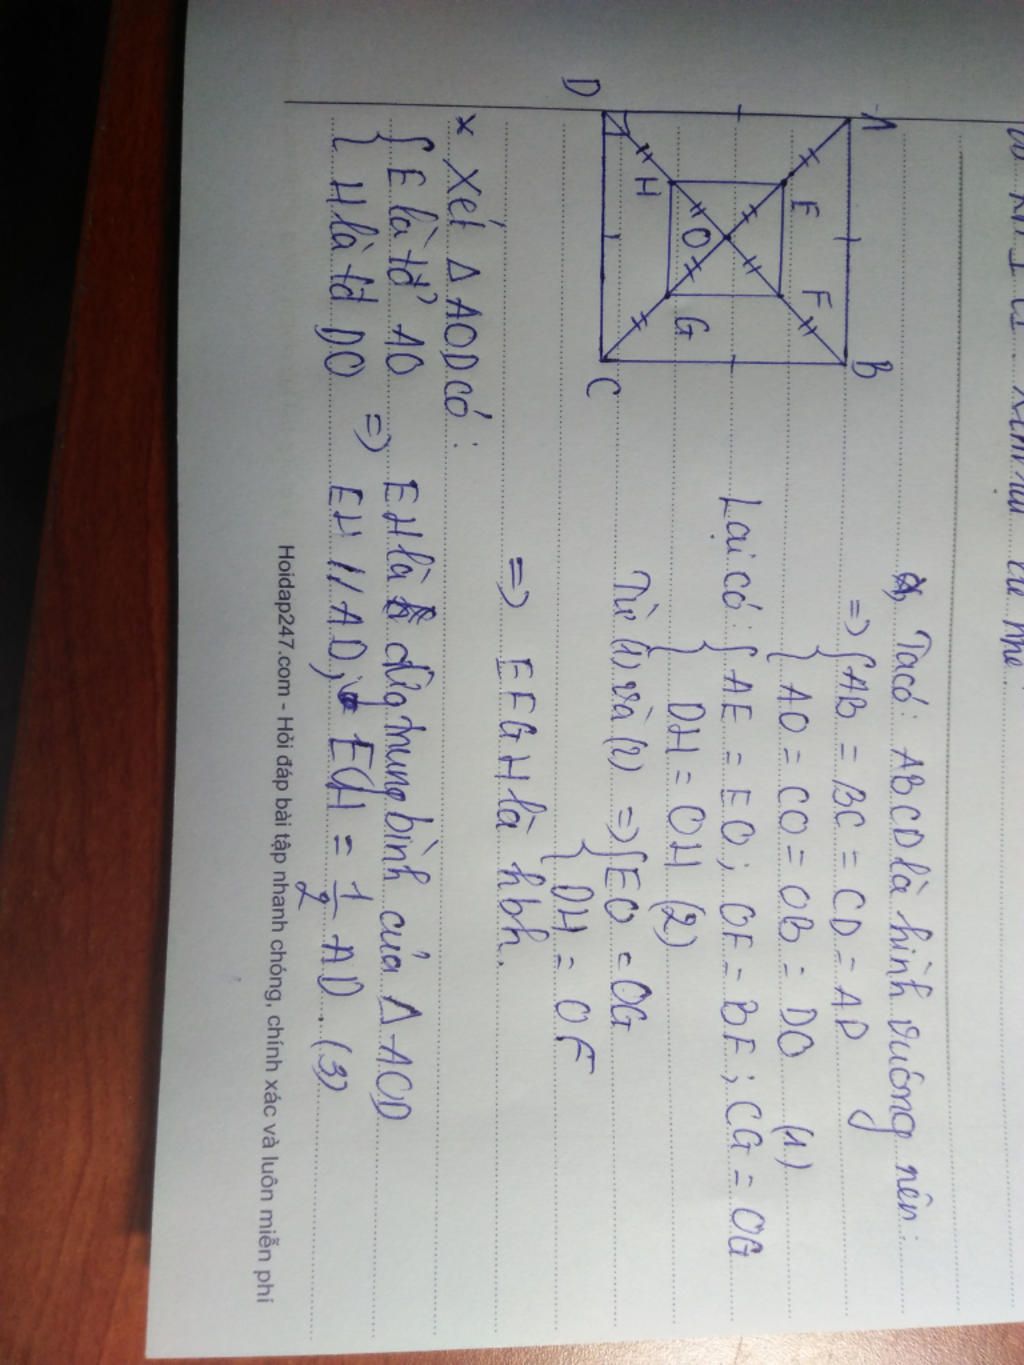 Ta có: ABCD là hình vuông nên:
=> { AB = BC = CD = AD
AO = CO = OB = DO (1)
Lại có: { AE = EO; OF = BF; CG = OG
DH = OH (2)
Từ (1) và (2) => { EO = OG
DH = OF
=> EFGH là hbh.
A
B
E
F
O
H
G
D
C
× Xét Δ AOD có:
{ E là tđ AO
H là tđ DO
=> EH là đg trung bình của Δ AOD
EH // AD; EH = 1/2 AD. (3)
Hoidap247.com - Hỏi đáp bài tập nhanh chóng, chính xác và luôn miễn phí